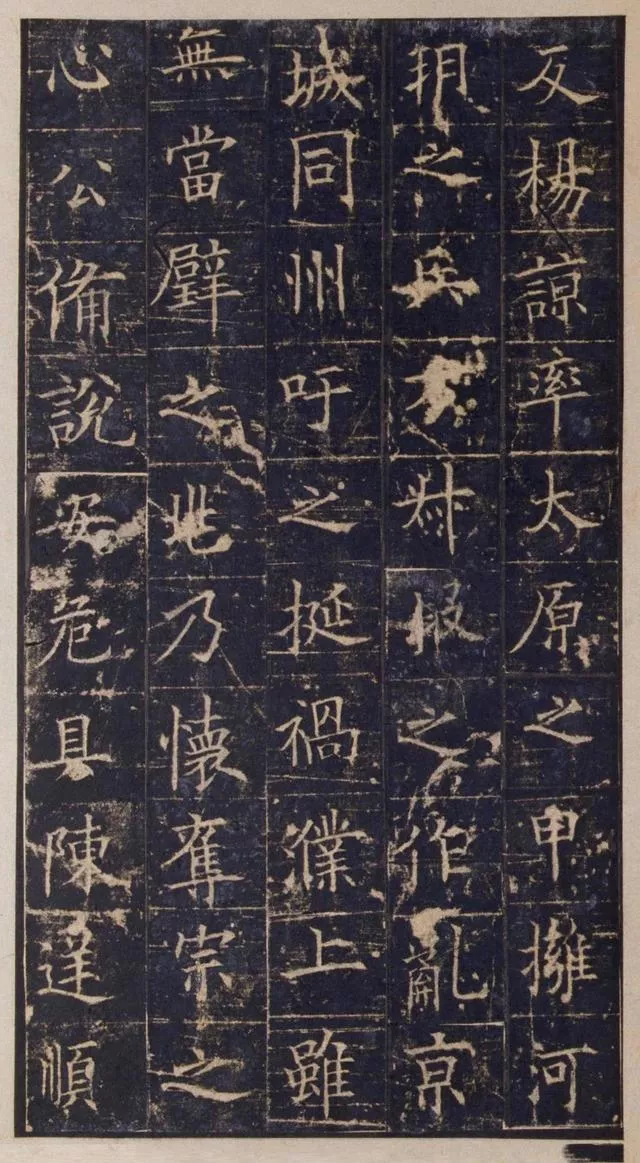 及楊諒率太原之甲擁河
朔之兵叔段之作亂亰
城同州吁之挺禍濮上雖
無當璧之兆乃懷奪宗之
心公備說安危具陳逆順